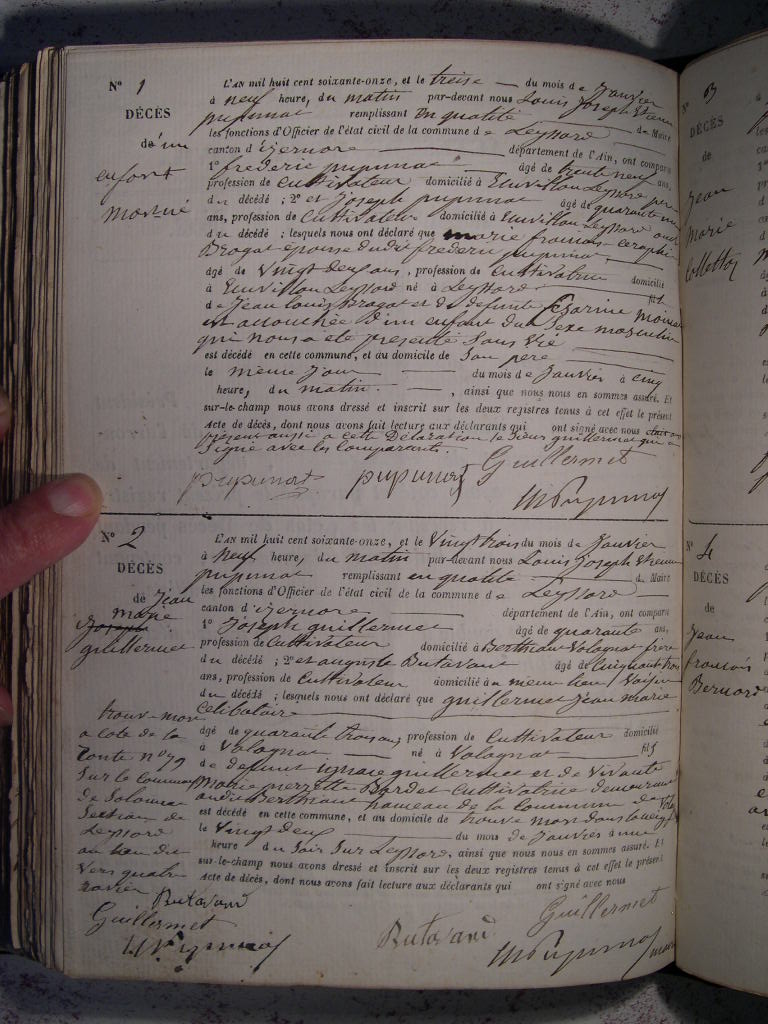 N° 1
DÉCÈS
d'un
enfant
mort né
L'AN mil huit cent soixante-onze, et le treise du mois de Janvier
à neuf heure, du matin par-devant nous Louis Joseph Etienne
pupunat remplissant en qualité de Maire
les fonctions d'Officier de l'état civil de la commune de Leyssard
canton d'izernore département de l'Ain, ont comparu
1° frederic pupunat âgé de trente neuf ans,
profession de Cultivateur domicilié à Leyssard pere
du décédé ; 2° et Joseph pupunat âgé de quarante
ans, profession de Cultivateur domicilié à Leyssard
du décédé ; lesquels nous ont déclaré que marie
Brogat épouse dudit frederic pupunat
âgé de vingt deux ans, profession de Cultivatrice domicilié
à Leyssard né à Leyssard fil
de Jean Louis Brogat et de defunte
est accouchée d'un enfant du sexe masculin
qui nous a été presenté sans vie
est décédé en cette commune, et au domicile de son pere
le meme jour du mois de Janvier à cinq
heure, du matin, ainsi que nous nous en sommes assuré. Et
sur-le-champ nous avons dressé et inscrit sur les deux registres tenus à cet effet le présent
Acte de décès, dont nous avons fait lecture aux déclarants qui ont signé avec nous
present aussi a cette Declaration le Sieur guillermet qui a
signé avec les comparants.
Guillermet
pupunat pupunat
N° 2
DÉCÈS
de Jean
marie
Joseph
guillermet
trouvé mort
a cote de la
route n° 79
sur le
de
section de
Leyssard
au lieu dit
vers
Butavand
Guillermet
L'AN mil huit cent soixante-onze, et le vingt trois du mois de Janvier
à neuf heure, du matin par-devant nous Louis Joseph Etienne
pupunat remplissant en qualité de Maire
les fonctions d'Officier de l'état civil de la commune de Leyssard
canton d'izernore département de l'Ain, ont comparu
1° Joseph guillermet âgé de quarante ans,
profession de Cultivateur domicilié à Berthiant Volognat frere
du décédé ; 2° et auguste Butavant âgé de
ans, profession de Cultivateur domicilié à meme lieu Voisin
du décédé ; lesquels nous ont déclaré que guillermet Jean marie
Celibataire
âgé de quarante trois ans, profession de Cultivateur domicilié
à Volognat né à Volognat fils
de defunt ignace guillermet et de vivante
Marie pierrette Bordet Cultivatrice demeurant
audit Berthiant hameau de la Commune de
est décédé en cette commune, et au domicile de trouvé mort dans
le vingt deux du mois de Janvier à une
heure du soir sur Leyssard, ainsi que nous nous en sommes assuré. Et
sur-le-champ nous avons dressé et inscrit sur les deux registres tenus à cet effet le présent
Acte de décès, dont nous avons fait lecture aux déclarants qui ont signé avec nous
Guillermet
Butavand
maire
N° 3
DÉCÈS
de
Jean
Marie
Collettoz
N° 4
DÉCÈS
de
Jean
francois
Bernard